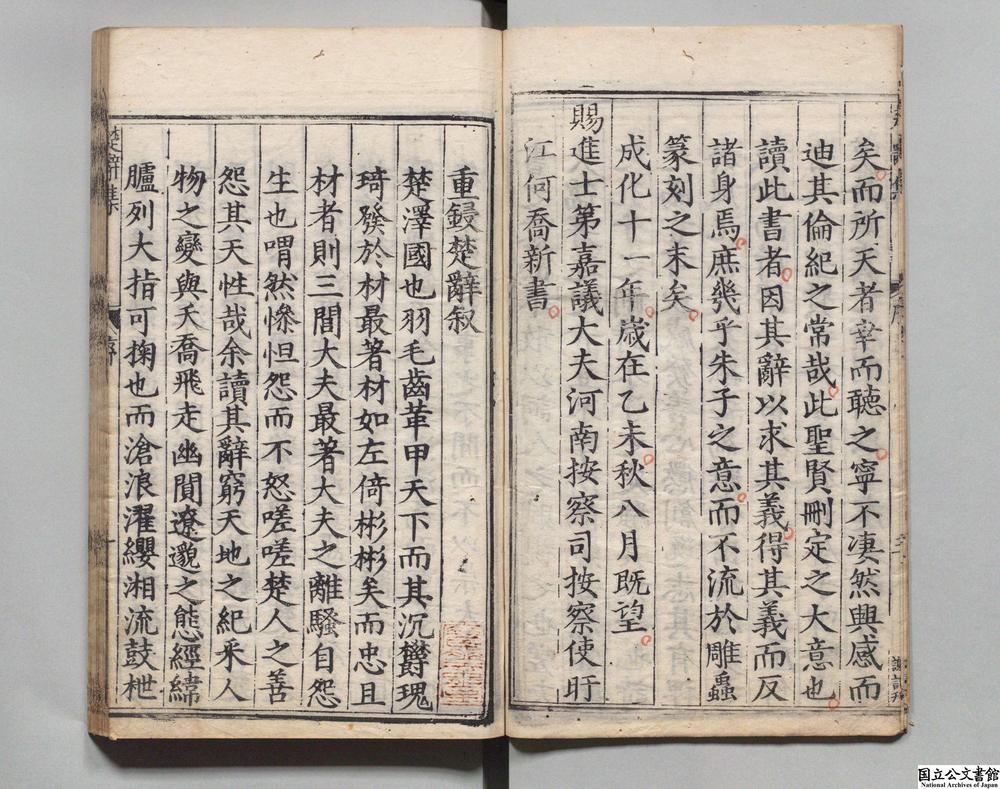 矣而所天者幸而聽之寧不凄然興感而
迪其倫紀之常哉此聖賢刪定之大意也
讀此書者因其辭以求其義得其義而反
諸身焉庶幾乎朱子之意而不流於雕蟲
篆刻之末矣
成化十一年歲在乙未秋八月既望
賜進士第嘉議大夫河南按察司按察使盱
江何喬新書
重鋟楚辭叙
楚澤國也羽毛齒革甲天下而其沉欝瑰
琦發於材最著材如左倚彬彬矣而忠且
材者則三閭大夫最著大夫之離騷自怨
生也喟然慘怛怨而不怒嗟嗟楚人之善
怨其天性哉余讀其辭窮天地之紀釆人
物之變與夭喬飛走幽閴遼邈之態經緯
臚列大指可掬也而滄浪濯纓湘流鼓枻
楚辭集
序
一
国立公文書館
National Archives of Japan